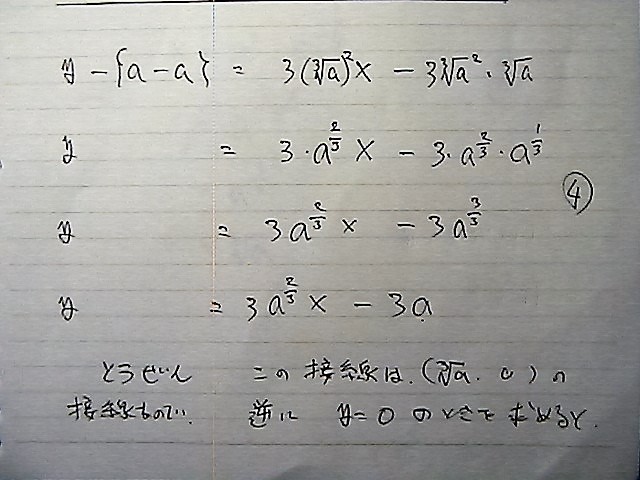 y - {a - a} = 3(∛a)²x - 3∛a²・∛a
y = 3・a^{2/3} x - 3・a^{2/3}・a^{1/3}
④
y = 3a^{2/3} x - 3a^{3/3}
y = 3a^{2/3} x - 3a
とうぜん この接線は、(∛a, 0) の
接線なので、逆に y=0 のときを 求めると、